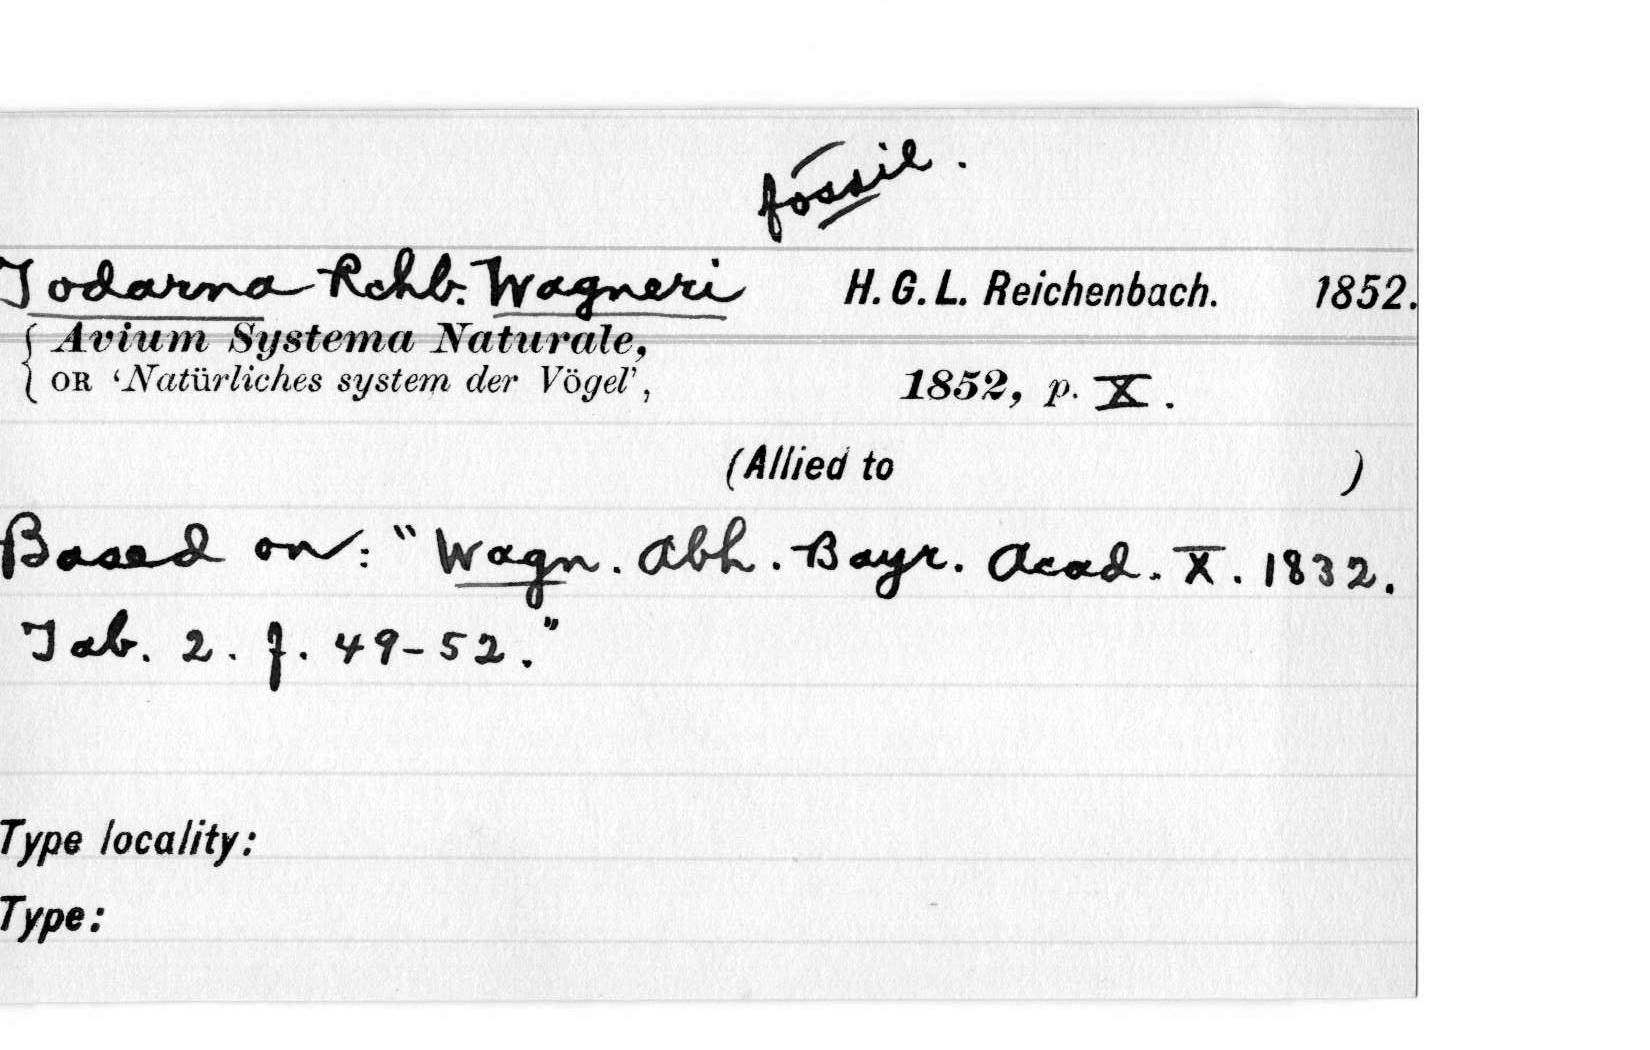 fossil.
Todarna Rchb. Wagneri H. G. L. Reichenbach. 1852.
{ Avium Systema Naturale,
OR ‘Natürliches system der Vögel’, 1852, p. X.
(Allied to )
Based on: " Wagn. Abh. Bayr. Acad. X. 1832.
Tab. 2. f. 49-52."
Type locality:
Type: